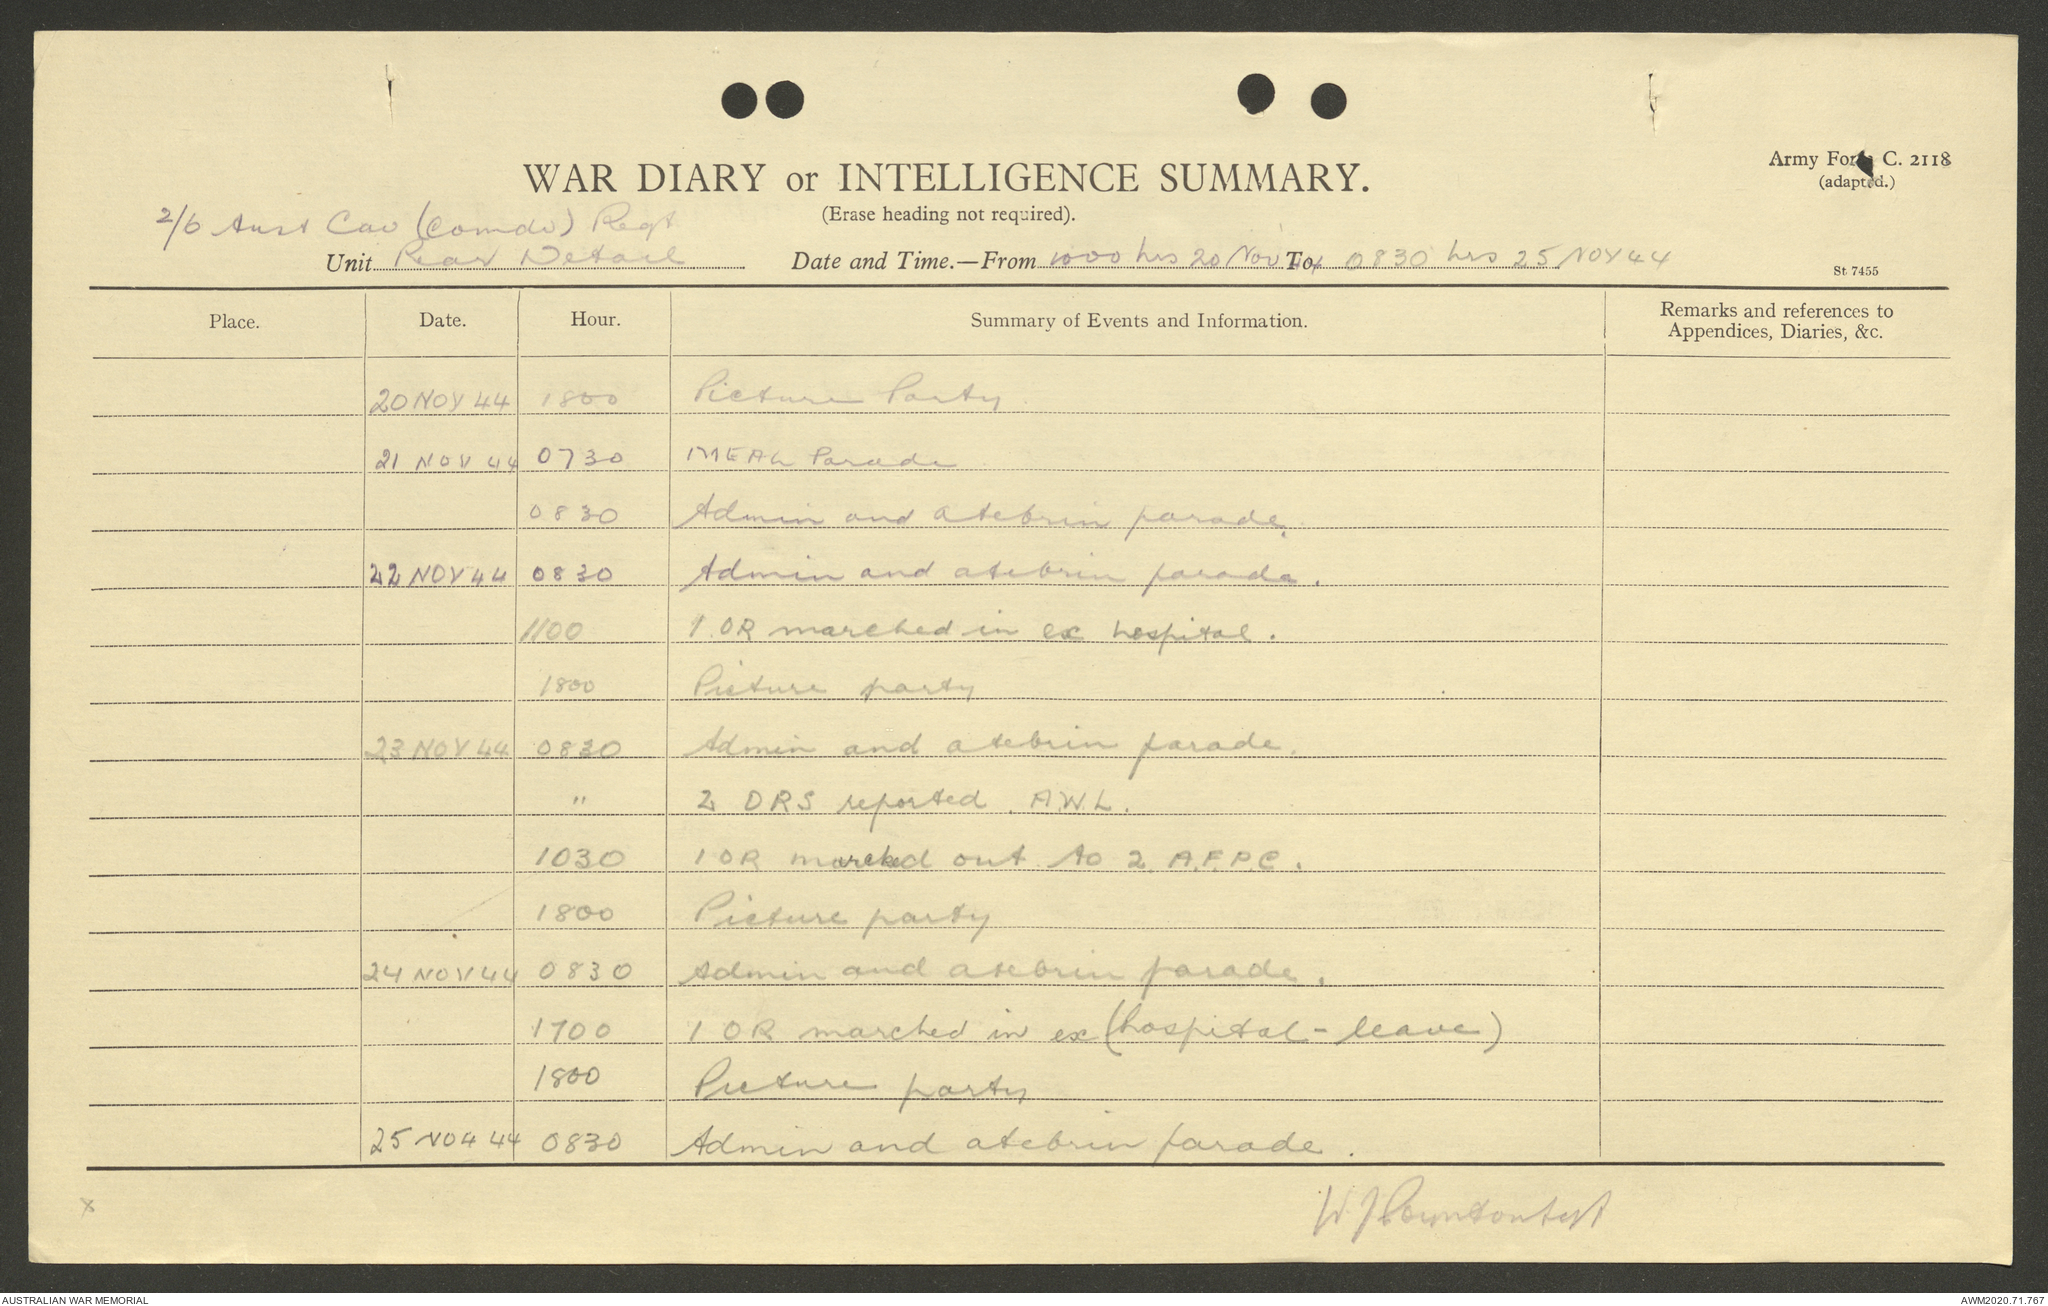 WAR DIARY or INTELLIGENCE SUMMARY.
(Erase heading not required).
Army Form C. 2118
(adapted.)
2/6 Aust Cav (Comdo) Regt
Unit Rear Detail
Date and Time.—From 1000 hrs 20 Nov 44 To 0830 hrs 25 NOV 44
St 7455
Place. Date. Hour. Summary of Events and Information. Remarks and references to Appendices, Diaries, &c.
20 NOV 44 1800 Picture Party
21 NOV 44 0730 MEAL Parade
0830 Admin and atebrin parade.
22 NOV 44 0830 Admin and atebrin parade.
1100 1 OR marched in ex hospital.
1800 Picture party
23 NOV 44 0830 Admin and atebrin parade.
" 2 ORS reported A.W.L.
1030 1 OR marched out to 2 A.F.P.C.
1800 Picture party
24 NOV 44 0830 Admin and atebrin parade.
1700 1 OR marched in ex (hospital - leave)
1800 Picture party
25 NOV 44 0830 Admin and atebrin parade.
x
W J
AUSTRALIAN WAR MEMORIAL
AWM2020.71.767